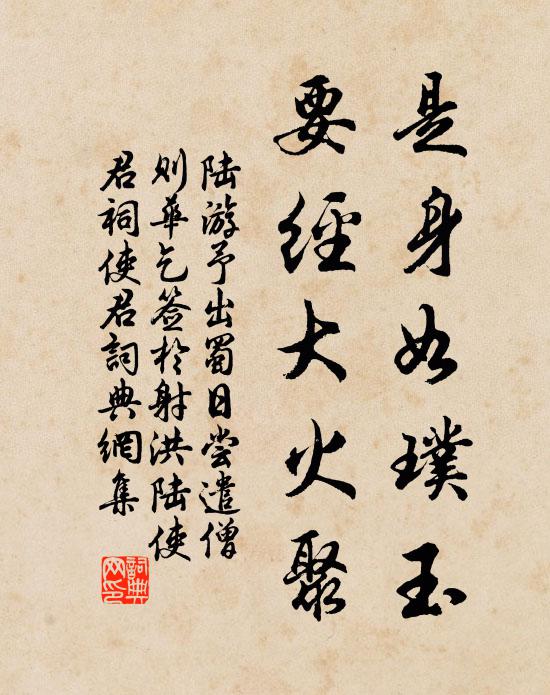 是身如璞玉
要經大火聚
陆游予出蜀日尝遣僧
则华乞签於射洪陆使
君祠使君詞典網集
詞典
网印